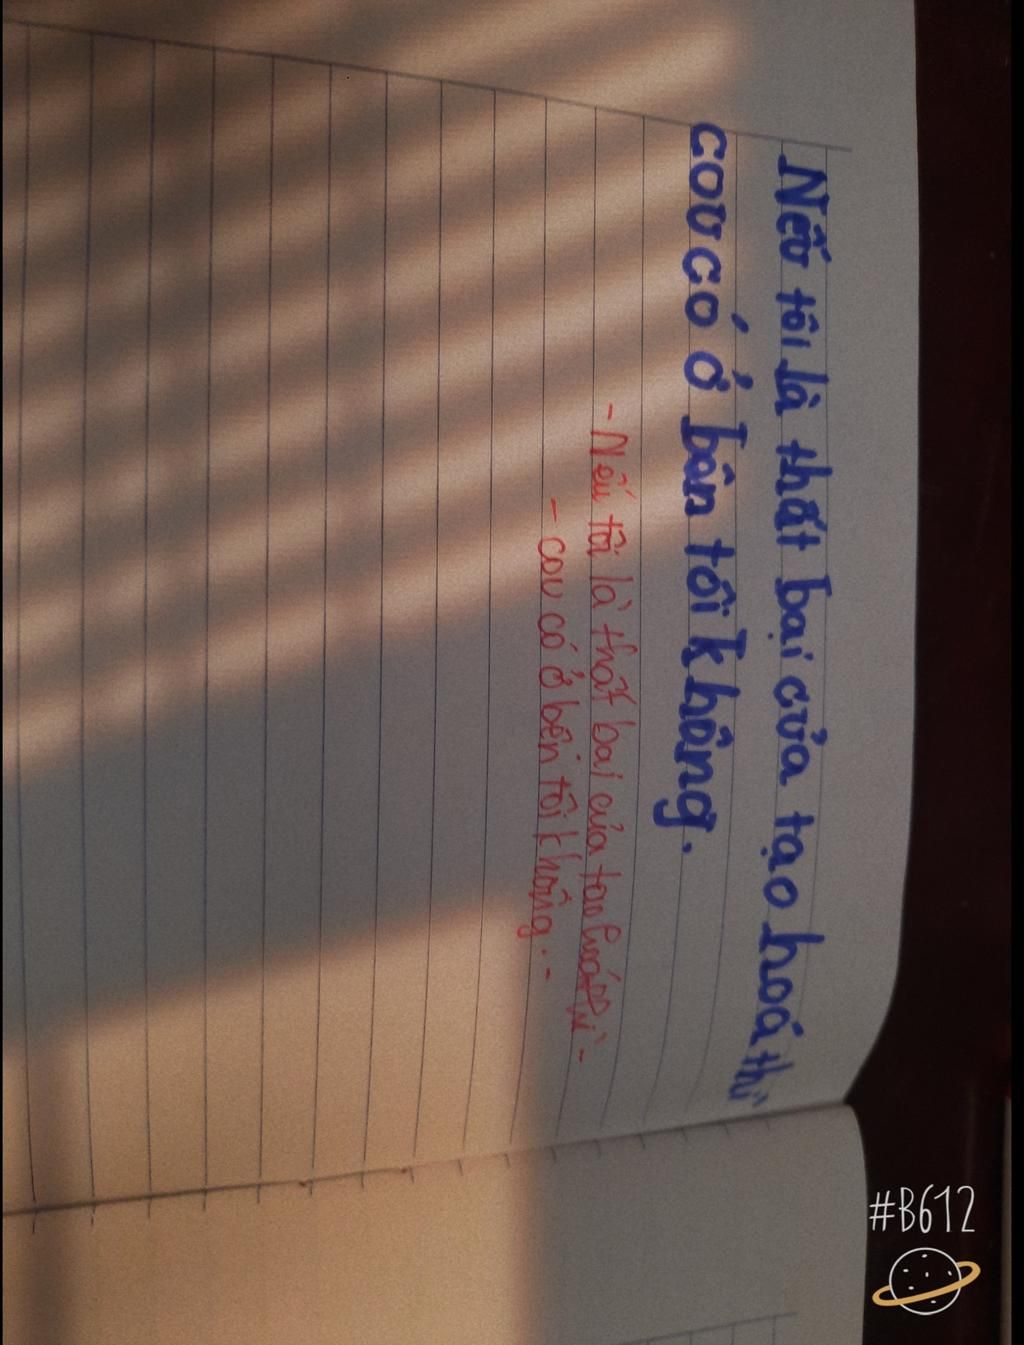 Nếu tôi là thất bại của tạo hoá thì
cou có ở bên tôi không.
- Nếu tôi là thất bại của tạo hoá thì -
- cou có ở bên tôi không. -
#B612